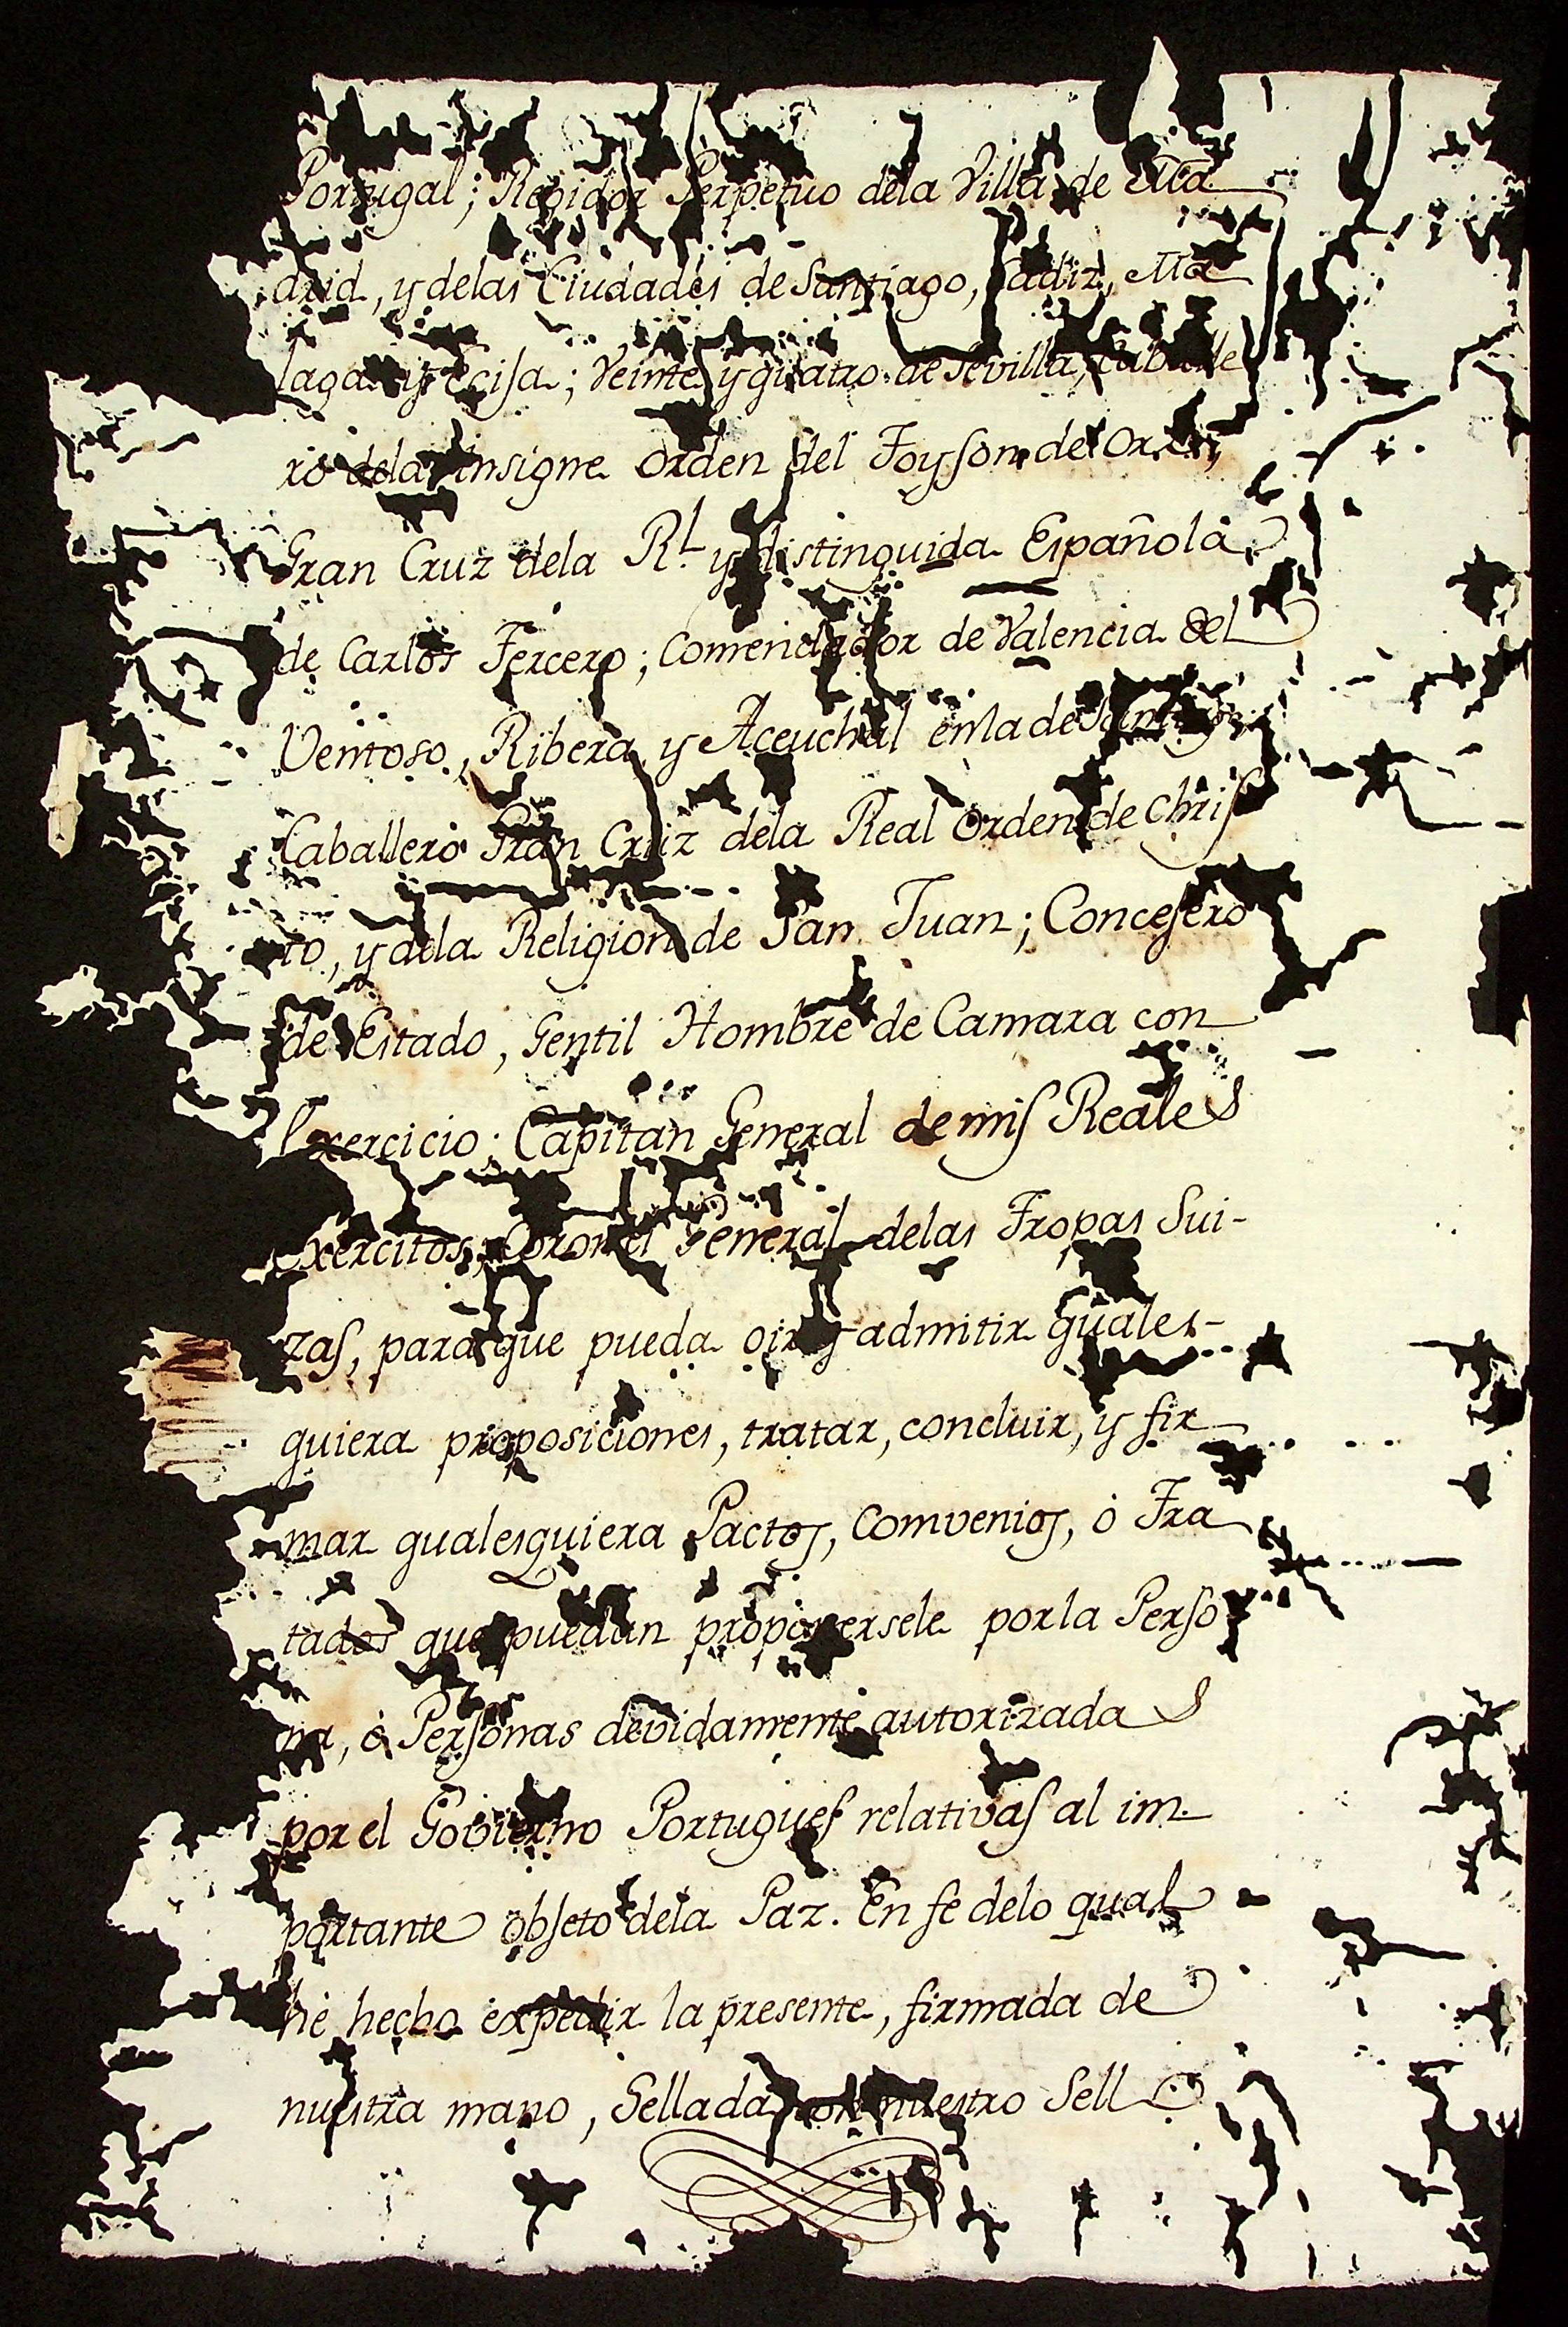 Portugal; Regidor Perpetuo dela Villa de Ma
drid, y delas Ciudades de Santiago, Cadiz, Ma
laga y Ecija; Veinte y quatro de Sevilla, Caballe
ro dela insigne Orden del Toyson de Oro;
Gran Cruz dela Rl. y distinguida Española
de Carlos Tercero; Comendador de Valencia del
Ventoso, Ribera y Aceuchal en la de Santiago
Caballero Gran Cruz dela Real Orden de Chris
to, y dela Religion de San Juan; Concejero
de Estado, Gentil Hombre de Camara con
Exercicio; Capitan General de mis Reales
Exercitos; Coronel General delas Tropas Sui-
zas, para que pueda oir y admitir quales-
quiera proposiciones, tratar, concluir, y fir
mar qualesquiera Pactos, Comvenios, ó Tra
tados que puedan proponersele por la Perso
na, ó Personas devidamente autorizadas
por el Govierno Portugues relativas al im-
portante objeto dela Paz. En fe delo qual
hé hecho expedir la presente, firmada de
nuestra mano, Sellada con nuestro Sello